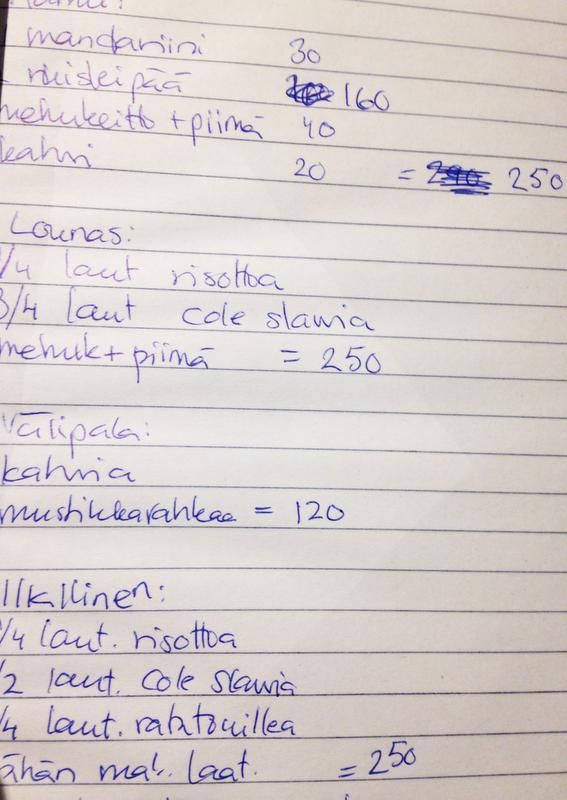 mandariini 30
ruisleipää 160
mehukeitto + piimä 40
kahvi 20 = 250
Lounas:
1/4 laut risottoa
3/4 laut cole slawia
mehuk + piimä = 250
Välipala:
kahvia
mustikkarahkaa = 120
Illallinen:
1/4 laut. risottoa
1/2 laut. cole slawia
1/4 laut. ratatouillea
vähän laat. = 250